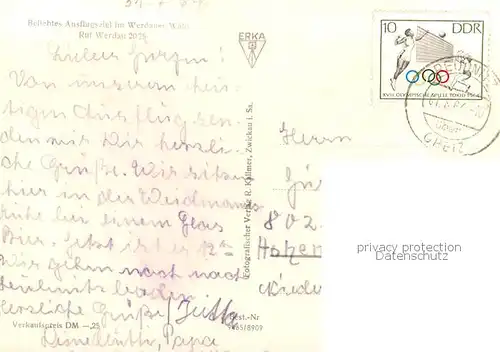 Beliebtes Ausflugsziel im Werdauer Wald
Ruf Werdau 2028
Lieber Jürgen!
Von unserem heu-
tigen Ausflug sen-
den wir Dir herzli-
che Grüße. Wir sitzen
hier in der Weidmanns
ruhe bei einem Glas
Bier. Jetzt ist es 12
Wir gehen noch nach
baden
Herzliche Grüße Jutta
Papa
Verkaufspreis DM -,25
Best.-Nr
Fotografischer Verlag R. Kallmer, Zwickau i. Sa.
ERKA
10 DDR
XVIII. OLYMPISCHE SPIELE TOKIO 1964
GREIZ
Herrn
802
privacy protection
Datenschutz